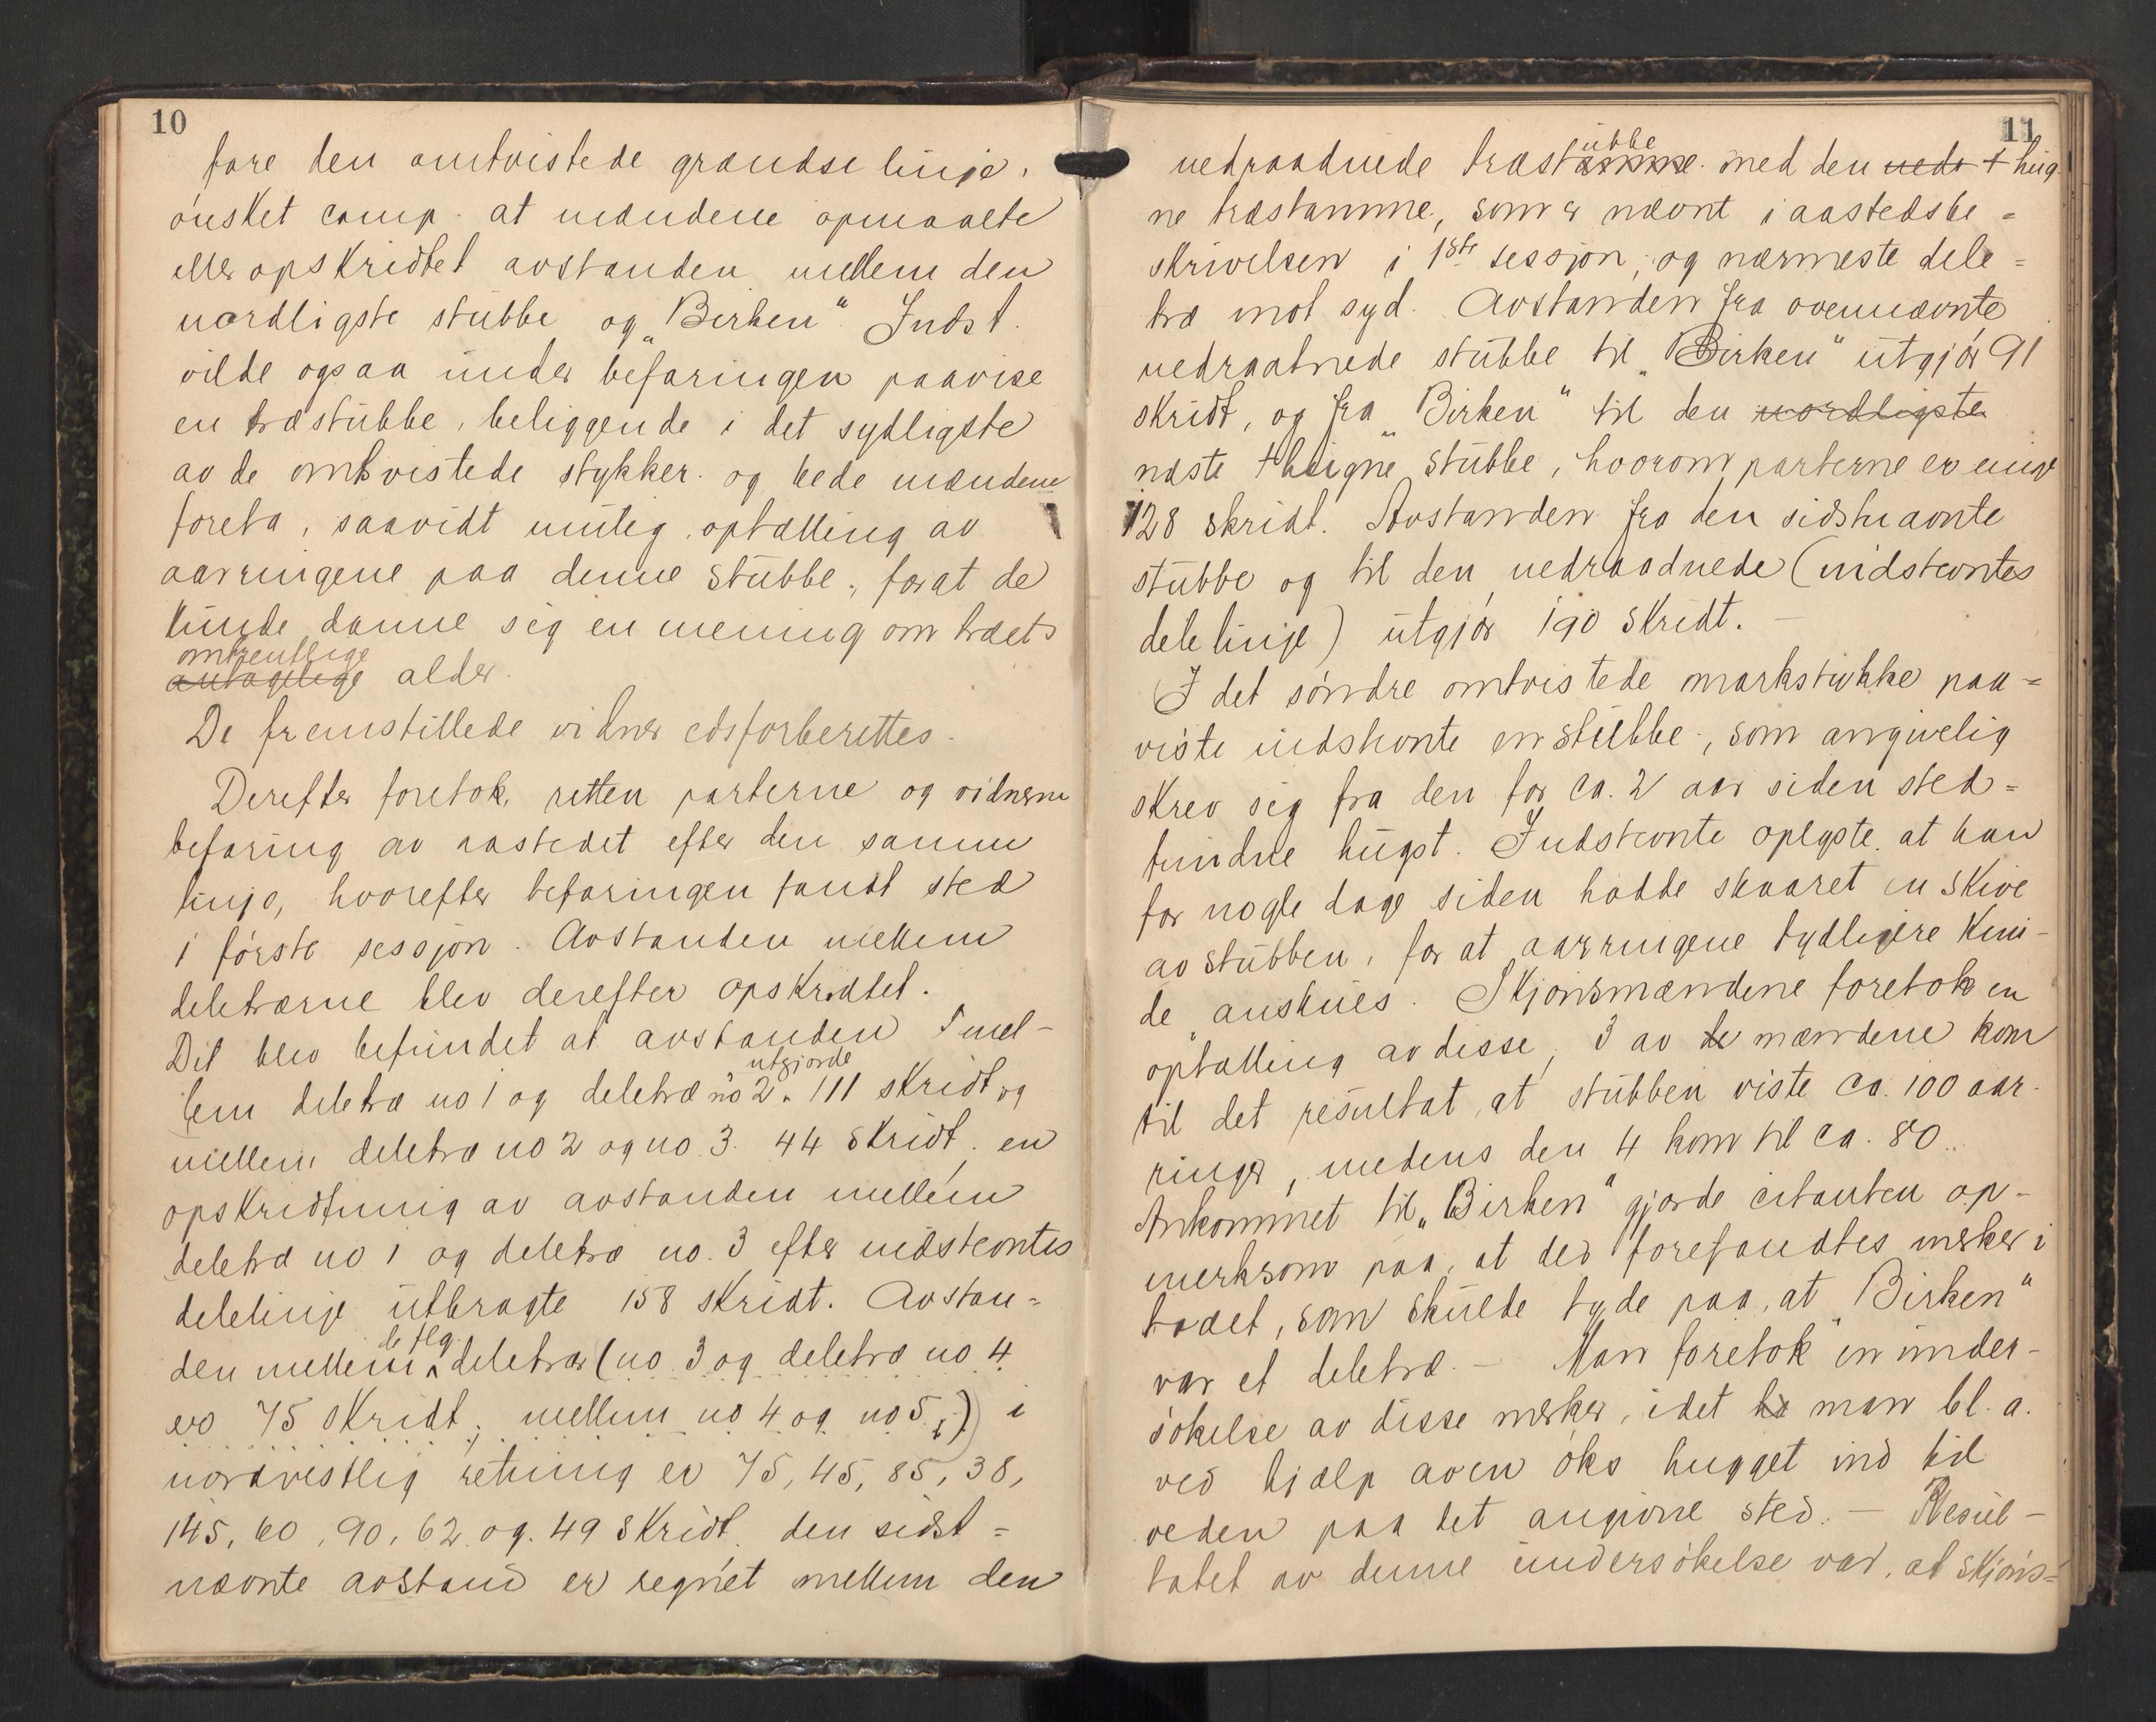 10
fare den omtvistede grændselinje,
ønsket comp. at mændene opmaalte
eller opskridtet avstanden mellem den
nordligste stubbe og „Birken“ Indst.
vilde ogsaa under befaringen paavise
en træstubbe, beliggende i det sydligste
av de omtvistede stykker. og bede mændene
foreta, saavidt mulig, optælling av
aarringene paa denne stubbe, forat de
kunde danne sig en mening om træets
omtrentlige
antagelige alder.
De fremstillede vidner edsforberettes.
Derefter foretok retten parterne og vidnerne
befaring av aastedet efter den samme
linje, hvorefter befaringen fandt sted
i første sessjon. Avstanden mellem
deletrærne blev derefter opskridtet.
Det blev befundet at avstanden mel-
utgjorde
lem deletræ no 1 og deletræ no 2. 111 skridt og
mellem deletræ no 2 og no 3. 44 skridt, en
opskridtning av avstanden mellem
deletræ no 1 og deletræ no. 3 efter indstevntes
delelinje utbragte 158 skridt. Avstan=
de flg.
den mellem deletrær (no. 3 og deletræ no 4
er 75 skridt, mellem no 4 og no 5,) i
nordvestlig retning er 75, 45, 85, 38,
145, 60, 90, 62 og. 49 skridt. den sidst=
nævnte avstand er regnet mellem den
11
ubbe
nedraadnede træstamme. med den neds t hug
ne træstamme, som er nævnt i aastedsbe=
skrivelsen i 1ste sessjon, og nærmeste dele=
træ mot syd. Avstanden fra ovennævnte
nedraatnede stubbe til „Birken“ utgjør 91
skridt, og fra „Birken“ til den nordligste
næste thugne stubbe, hvorom parterne er enige
128 skridt. Avstanden fra den sidstnævnte
stubbe og til den nedraadnede (indstevntes
delelinje) utgjør 190 skridt. —
I det søndre omtvistede markstykke paa=
viste indstevnte en stubbe, som angivelig
skrev sig fra den for ca. 2 aar siden sted=
fundne hugst. Indstevnte oplyste at han
for nogle dage siden hadde skaaret en skive
av stubben, for at aarringene tydligere kun-
de anskues. Skjønsmændene foretok en
optælling av disse, 3 av de mændene kom
til det resultat, at stubben viste ca. 100 aar-
ringer, medens den 4 kom til ca. 80.
Ankommet til „Birken“ gjorde citanten op-
merksom paa, at der forefandtes merker i
træet, som skulde tyde paa, at „Birken“
var et deletræ. — Man foretok en under-
søkelse av disse merker, idet ha man bl. a.
ved hjælp av en øks hugget ind til
veden paa det angivne sted. — Resul-
tatet av denne undersøkelse var, at skjøns=